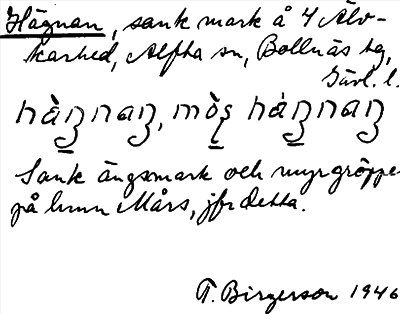 Hägnan, sank mark å 4 Älv-
karhed, Alfta sn, Bollnäs tg,
Gävl. l.
Sank ängsmark och myrgröppe
på hmn Mårs, jfr detta.
T. Birgerson 1946